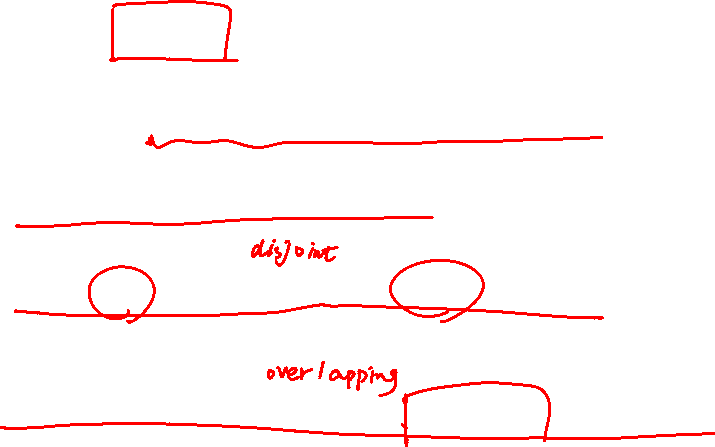 disjoint
overlapping